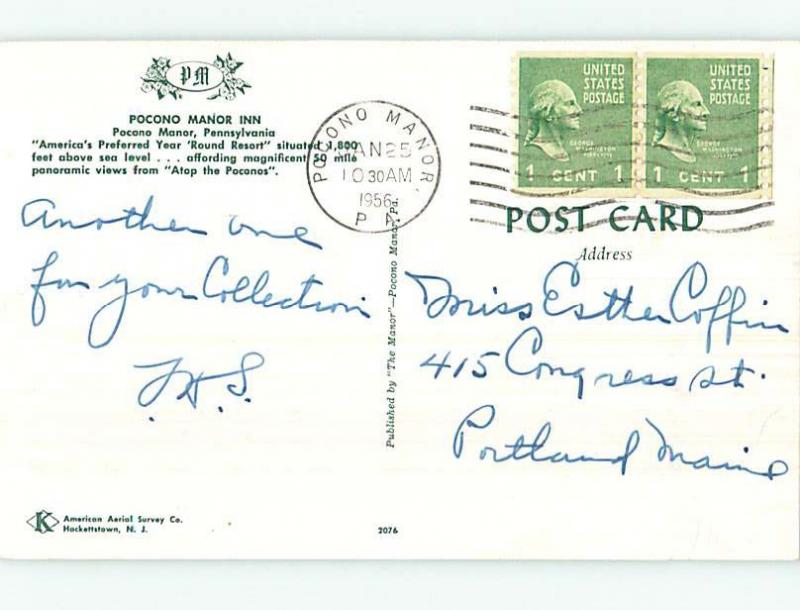 PM
POCONO MANOR INN
Pocono Manor, Pennsylvania
"America's Preferred Year 'Round Resort" situated 1,800
feet above sea level . . . affording magnificent 50 mile
panoramic views from "Atop the Poconos".
POCONO MANOR,
JAN 25
10 30 AM
1956
PA.
UNITED
STATES
POSTAGE
GEORGE
WASHINGTON
1 CENT 1
UNITED
STATES
POSTAGE
GEORGE
WASHINGTON
1 CENT 1
POST CARD
Address
Another one
for your Collection
Published by "The Manor"—Pocono Manor, Pa.
Miss Esther Coffin
415 Congress St.
Portland Maine
K
American Aerial Survey Co.
Hackettstown, N. J.
2076